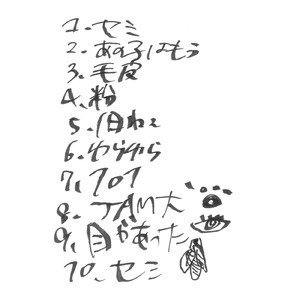 1. セミ
2. あの子はもう
3. 毛皮
4. 粉
5.
6. ゆらゆら
7. 101
8. JAM大
9. 目があった
10. セミ